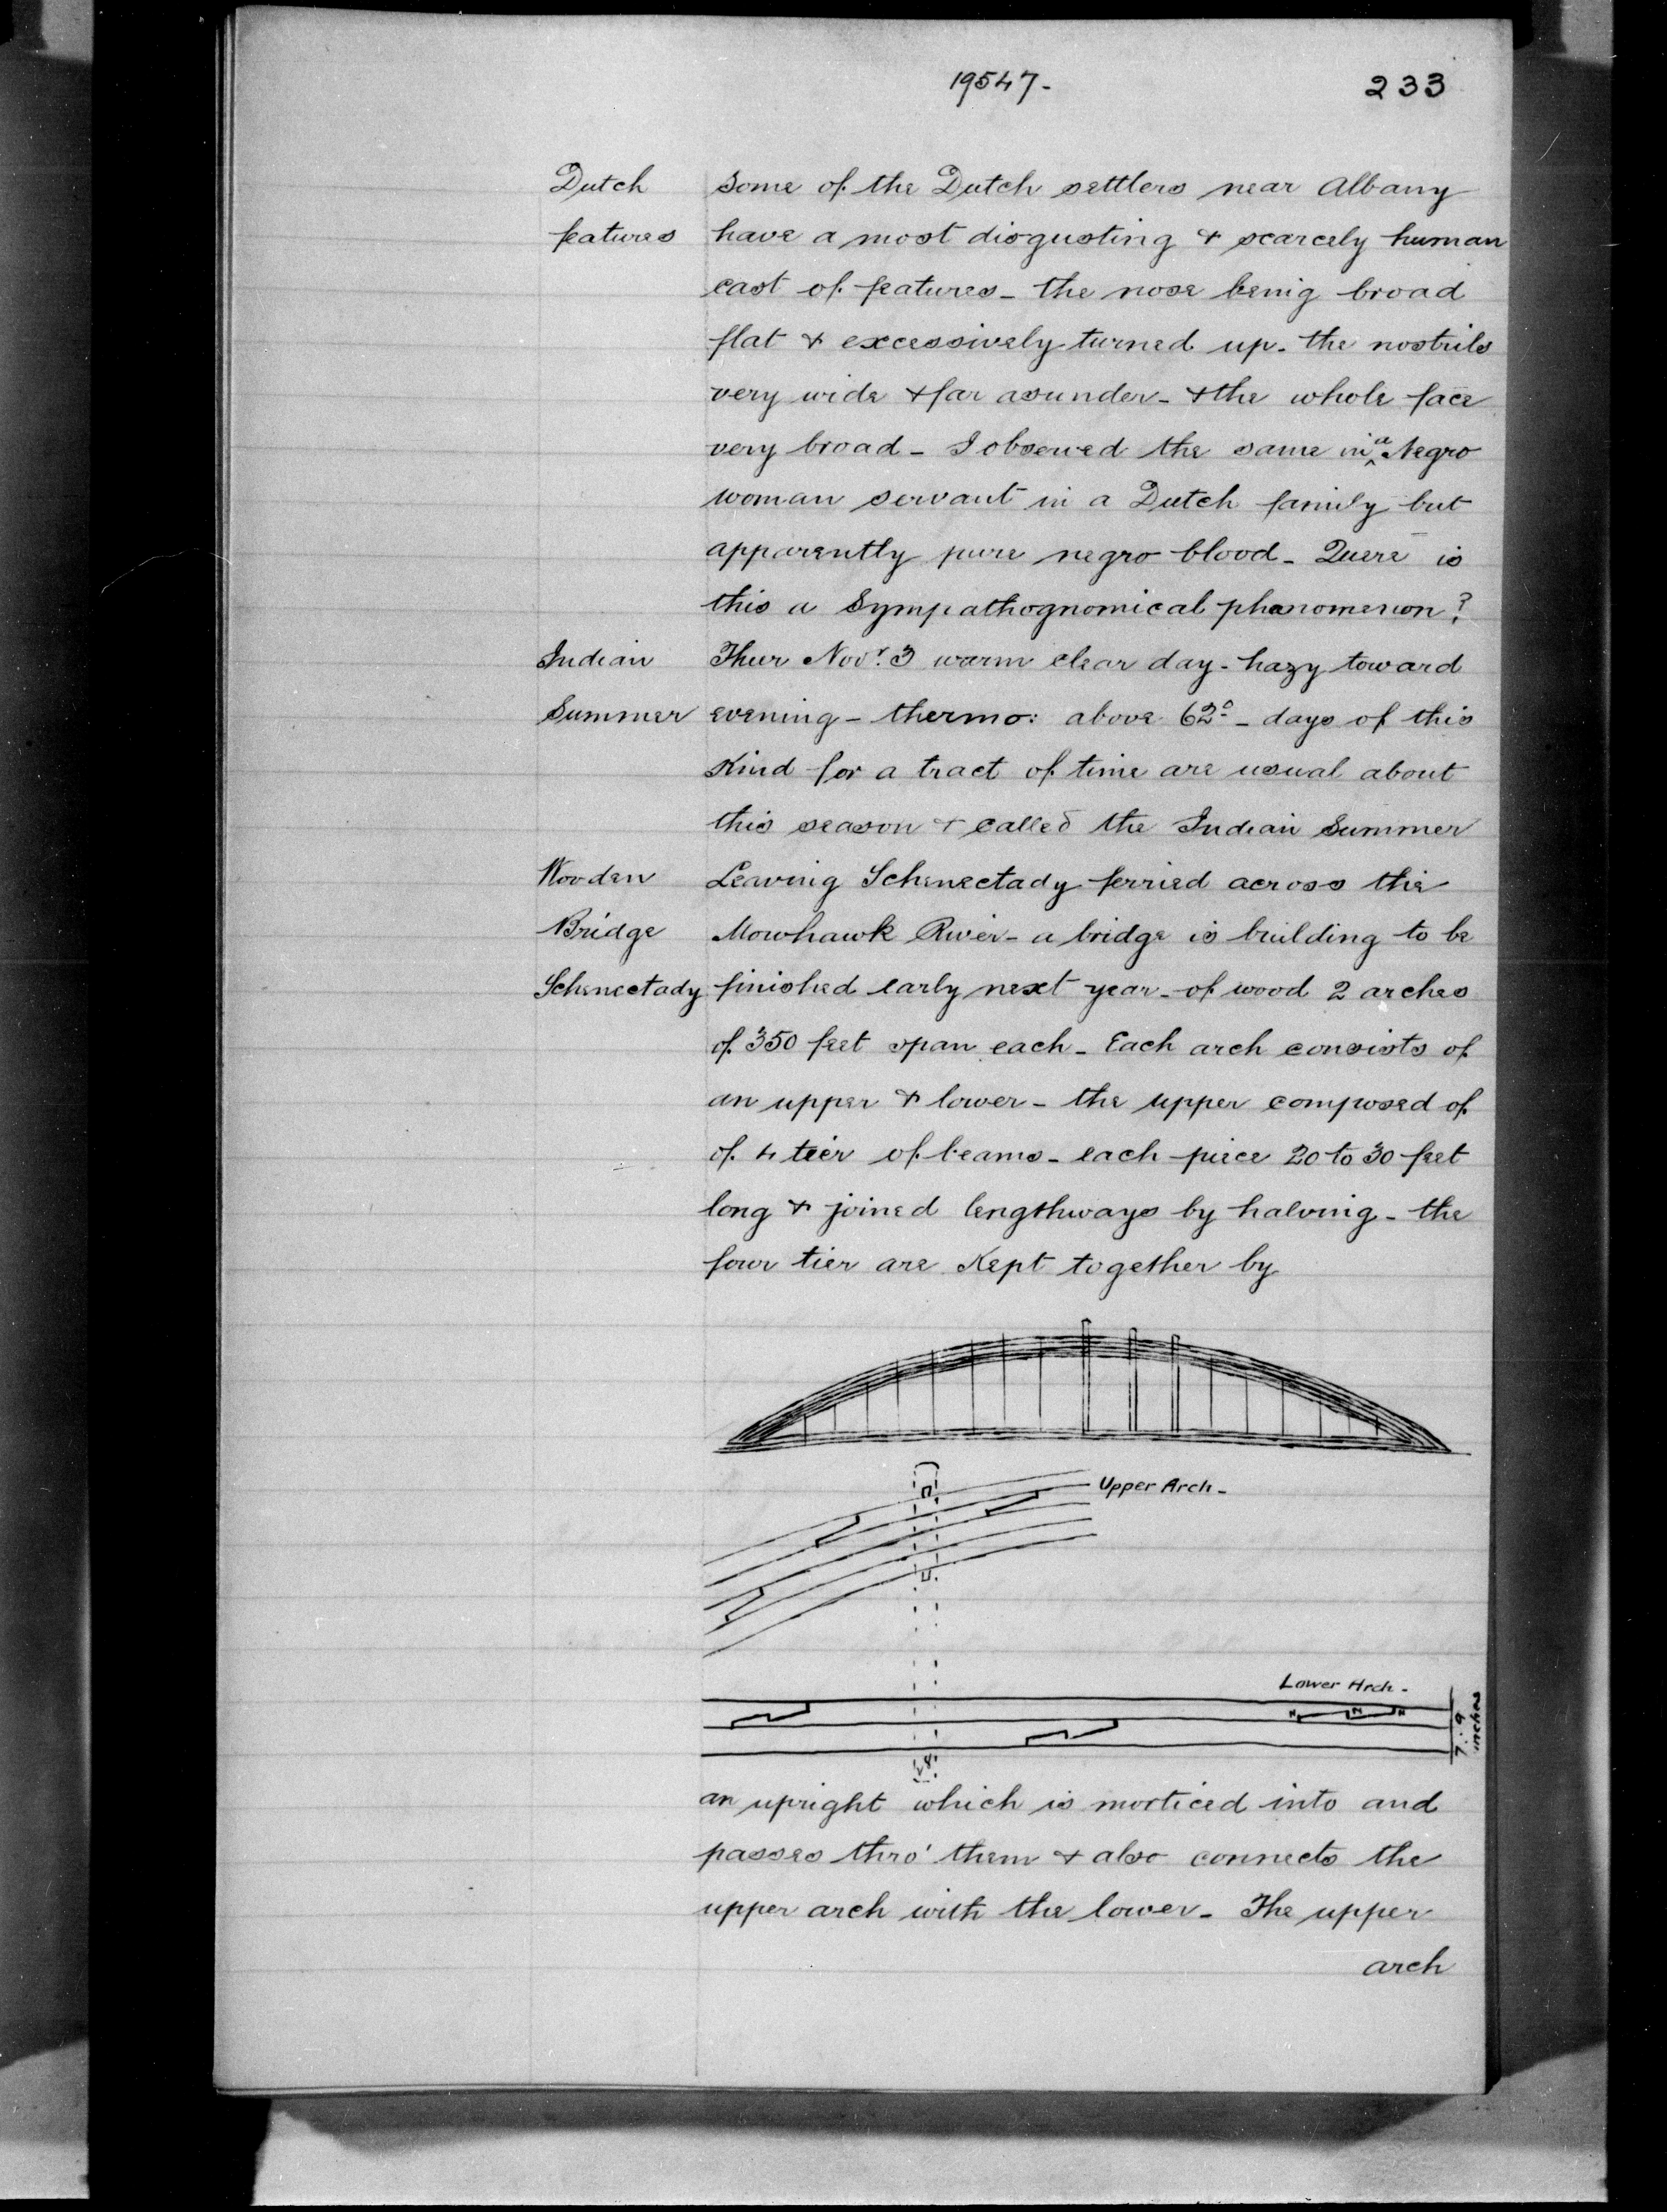 19547- 233
Dutch some of the Dutch settlers near Albany
features have a most disgusting & scarcely human
cast of features - the nose being broad
flat & excessively turned up - the nostrils
very wide & far asunder - & the whole face
very broad - I observed the same in ^a Negro
woman servant in a Dutch family but
apparently pure negro blood - Quere is
this a Sympathognomical phenomenon?
Indian Thur Novr. 3 warm clear day - hazy toward
Summer evening - thermo: above 62° - days of this
Kind for a tract of time are usual about
this season & called the Indian Summer
Wooden Leaving Schenectady ferried across the
Bridge Mowhawk River - a bridge is building to be
Schenectady finished early next year - of wood 2 arches
of 350 feet span each - Each arch consists of
an upper & lower - the upper composed of
of 4 tier of beams - each piece 20 to 30 feet
long & joined lengthways by halving - the
four tier are Kept together by
Upper Arch -
Lower Arch -
7 : 9
inches
an upright which is morticed into and
passes thro' them & also connects the
upper arch with the lower - The upper
arch